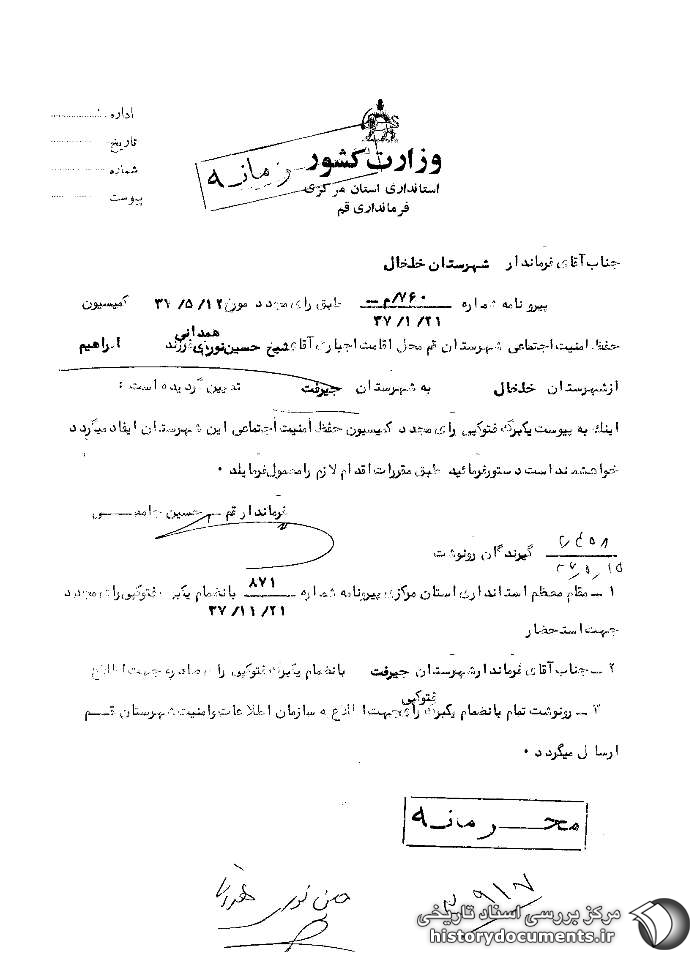 اداره
تاریخ
شماره
پیوست
وزارت کشور
محرمانه
استانداری استان مرکزی
فرمانداری قم
جناب آقای فرماندار شهرستان خلخال
پیرو نامه شماره ۷۶۰/م ــ ۳۷/۱/۲۱ طبق رای مجدد مورخ ۳۷/۵/۱۲ کمیسیون
حفظ امنیت اجتماعی شهرستان قم محل اقامت اجباری آقای شیخ حسین نوری همدانی فرزند ابراهیم
از شهرستان خلخال به شهرستان جیرفت تعیین گردیده است :
اینک به پیوست یکبرگ فتوکپی رای مجدد کمیسیون حفظ امنیت اجتماعی این شهرستان ایفاد میگردد
خواهشمند است دستور فرمائید طبق مقررات اقدام لازم را معمول فرمایند ۰
فرماندار قم ــ حسین جامعی
گیرندگان رونوشت
۱ ــ مقام معظم استانداری استان مرکزی پیرو نامه شماره ۸۷۱ ۳۷/۱۱/۲۱ بانضمام یکبرگ فتوکپی رای مجدد
جهت استحضار
۲ ــ جناب آقای فرماندار شهرستان جیرفت بانضمام یکبرگ فتوکپی رای صادره جهت اطلاع
۳ ــ رونوشت تمام بانضمام یکبرگ فتوکپی رای جهت اطلاع به سازمان اطلاعات و امنیت شهرستان قم
ارسال میگردد ۰
محرمانه
مرکز بررسی اسناد تاریخی
historydocuments.ir